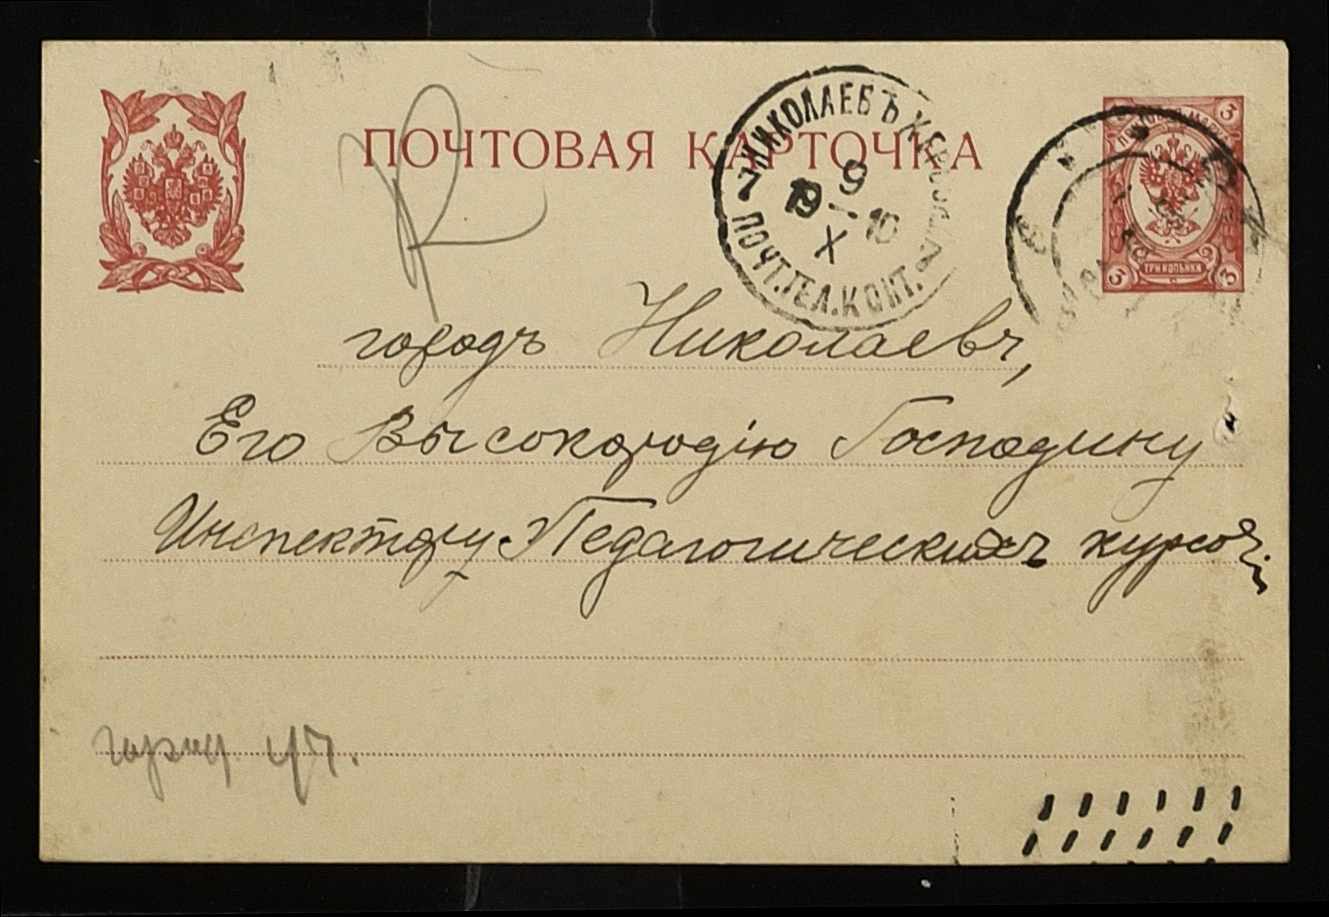 ПОЧТОВАЯ КАРТОЧКА
R
НИКОЛАЕВЪ ХЕРСОН.
9
19 – 10
X
ПОЧТ.ТЕЛ.КОНТ.
3 3
3 ТРИ КОПѢЙКИ 3
городъ Николаевъ,
Его Высокородію Господину
Инспектору Педагогическихъ курсовъ.